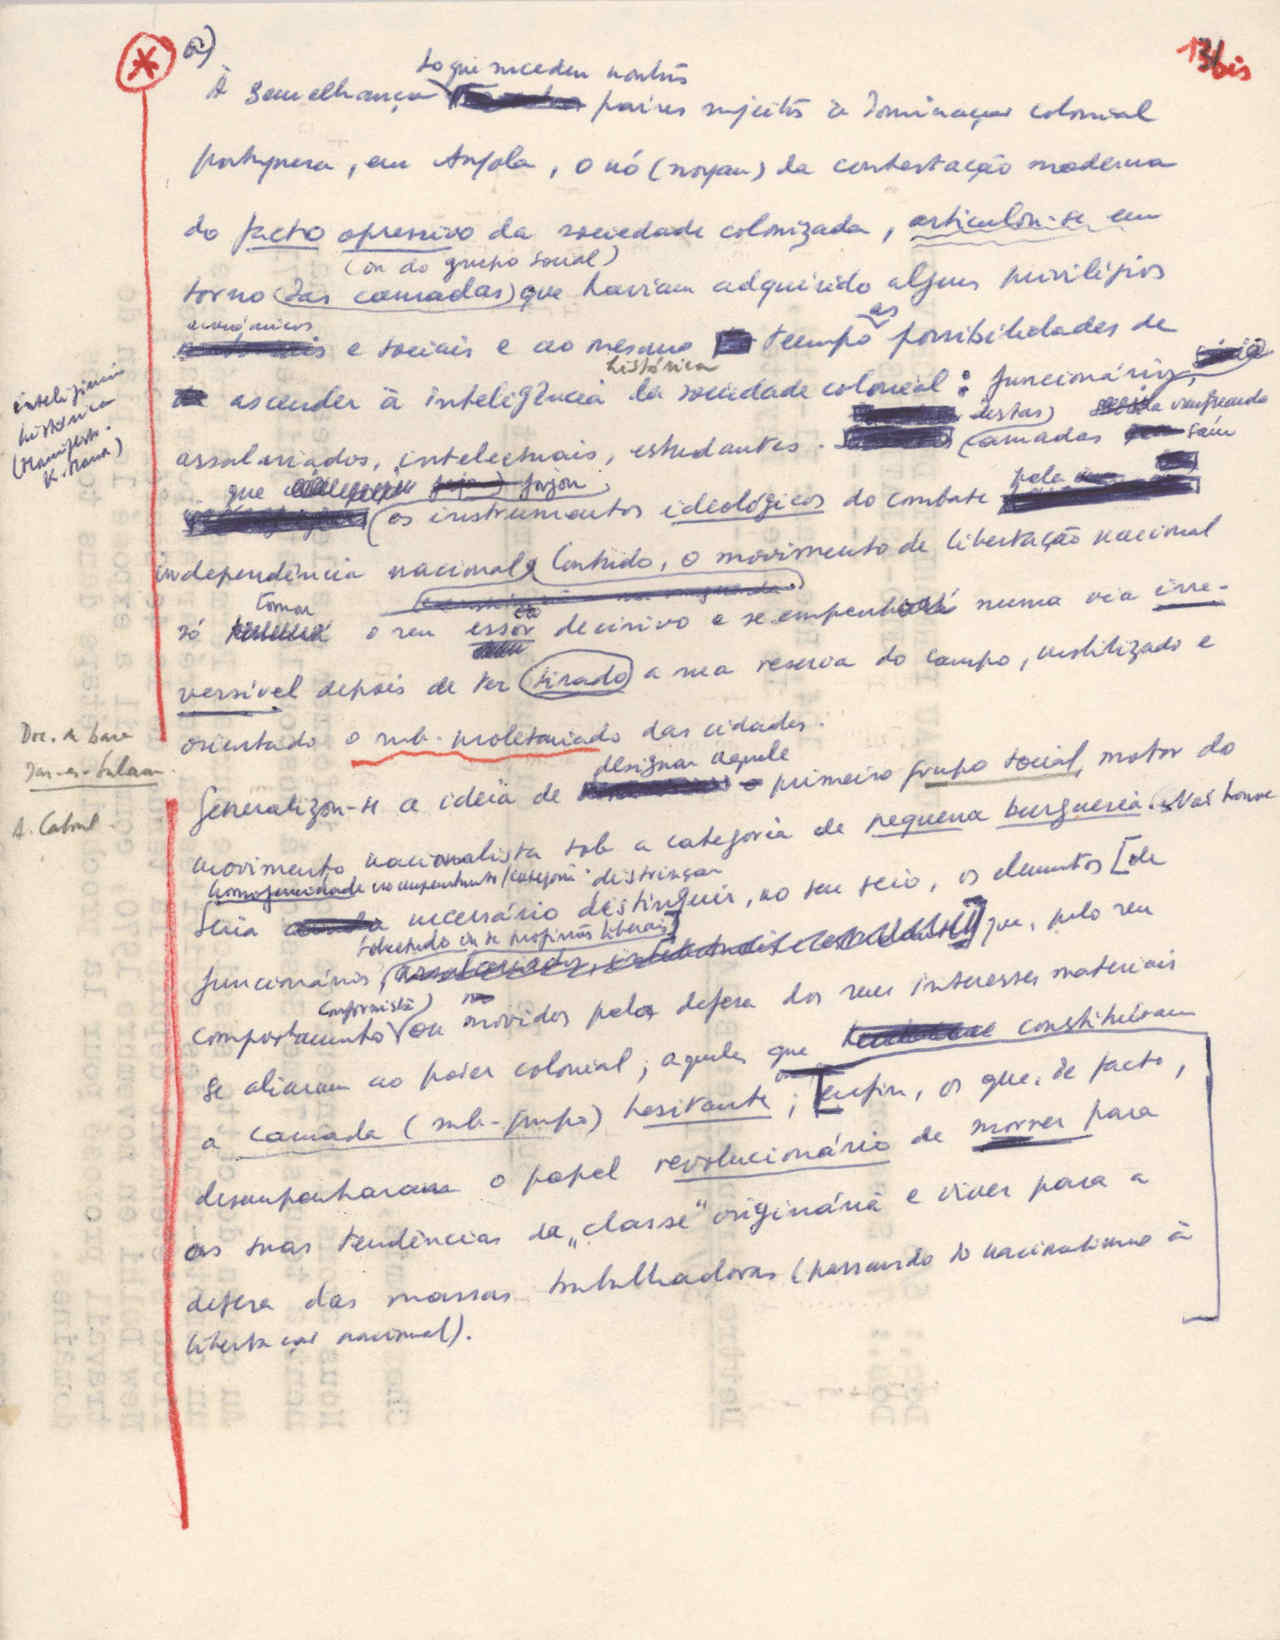 a)
13/bis
do que sucedeu noutros
À semelhança países sujeitos à dominação colonial
portuguesa, em Angola, o nó (noyau) da contestação moderna
do facto opressivo da sociedade colonizada, articulou-se em
(ou do grupo social)
torno (das camadas) que haviam adquirido alguns privilégios
económicos
e sociais e ao mesmo tempo as possibilidades de
histórica
ascender à inteligência da sociedade colonial: funcionários,
inteligência
histórica
(Manifesto.
K. Marx)
destas) vanguarda
assalariados, intelectuais, estudantes. (camadas saiu
que forjou
pela
os instrumentos ideológicos do combate
independência nacional. Contudo, o movimento de libertação nacional
tomou
só o seu essor decisivo e se numa via irre-
versível depois de ter tirado a sua reserva do campo, mobilizado e
orientado o sub-proletariado das cidades.
Doc. de base
Dar-es-Salam.
A. Cabral
designar aquele
Generalizou-se a ideia de primeiro grupo social, motor do
movimento nacionalista sob a categoria de pequena burguesia. Não houve
homogeneidade no comportamento/categoria destrinçar
Seria necessário distinguir, no seu seio, os elementos [de
sobretudo os de profissões liberais]
funcionários, que, pelo seu
conformista)
comportamento ou movidos pela defesa dos seus interesses materiais
se aliaram ao poder colonial; aqueles que constituíram
a camada (sub-grupo) hesitante; [enfim, os que, de facto,
desempenharam o papel revolucionário de morrer para
as suas tendências da "classe" originária e viver para a
defesa das massas trabalhadoras (passando do nacionalismo à
libertação nacional).